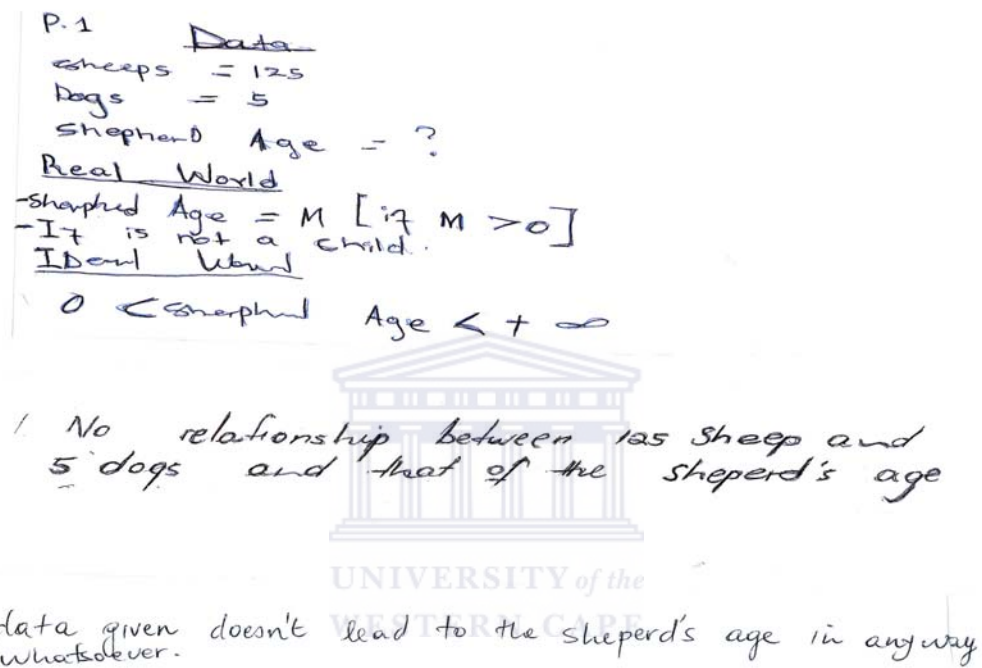 P.1
Data
sheeps = 125
Dogs = 5
shepherD Age = ?
Real World
-Sharphed Age = M [if M >0]
-It is not a child.
IDeal World
0 < Age < + ∞
1. No relationship between 125 sheep and
5 dogs and that of the sheperd's age
UNIVERSITY of the
WESTERN CAPE
data given doesn't lead to the sheperd's age in anyway
whatsoever.